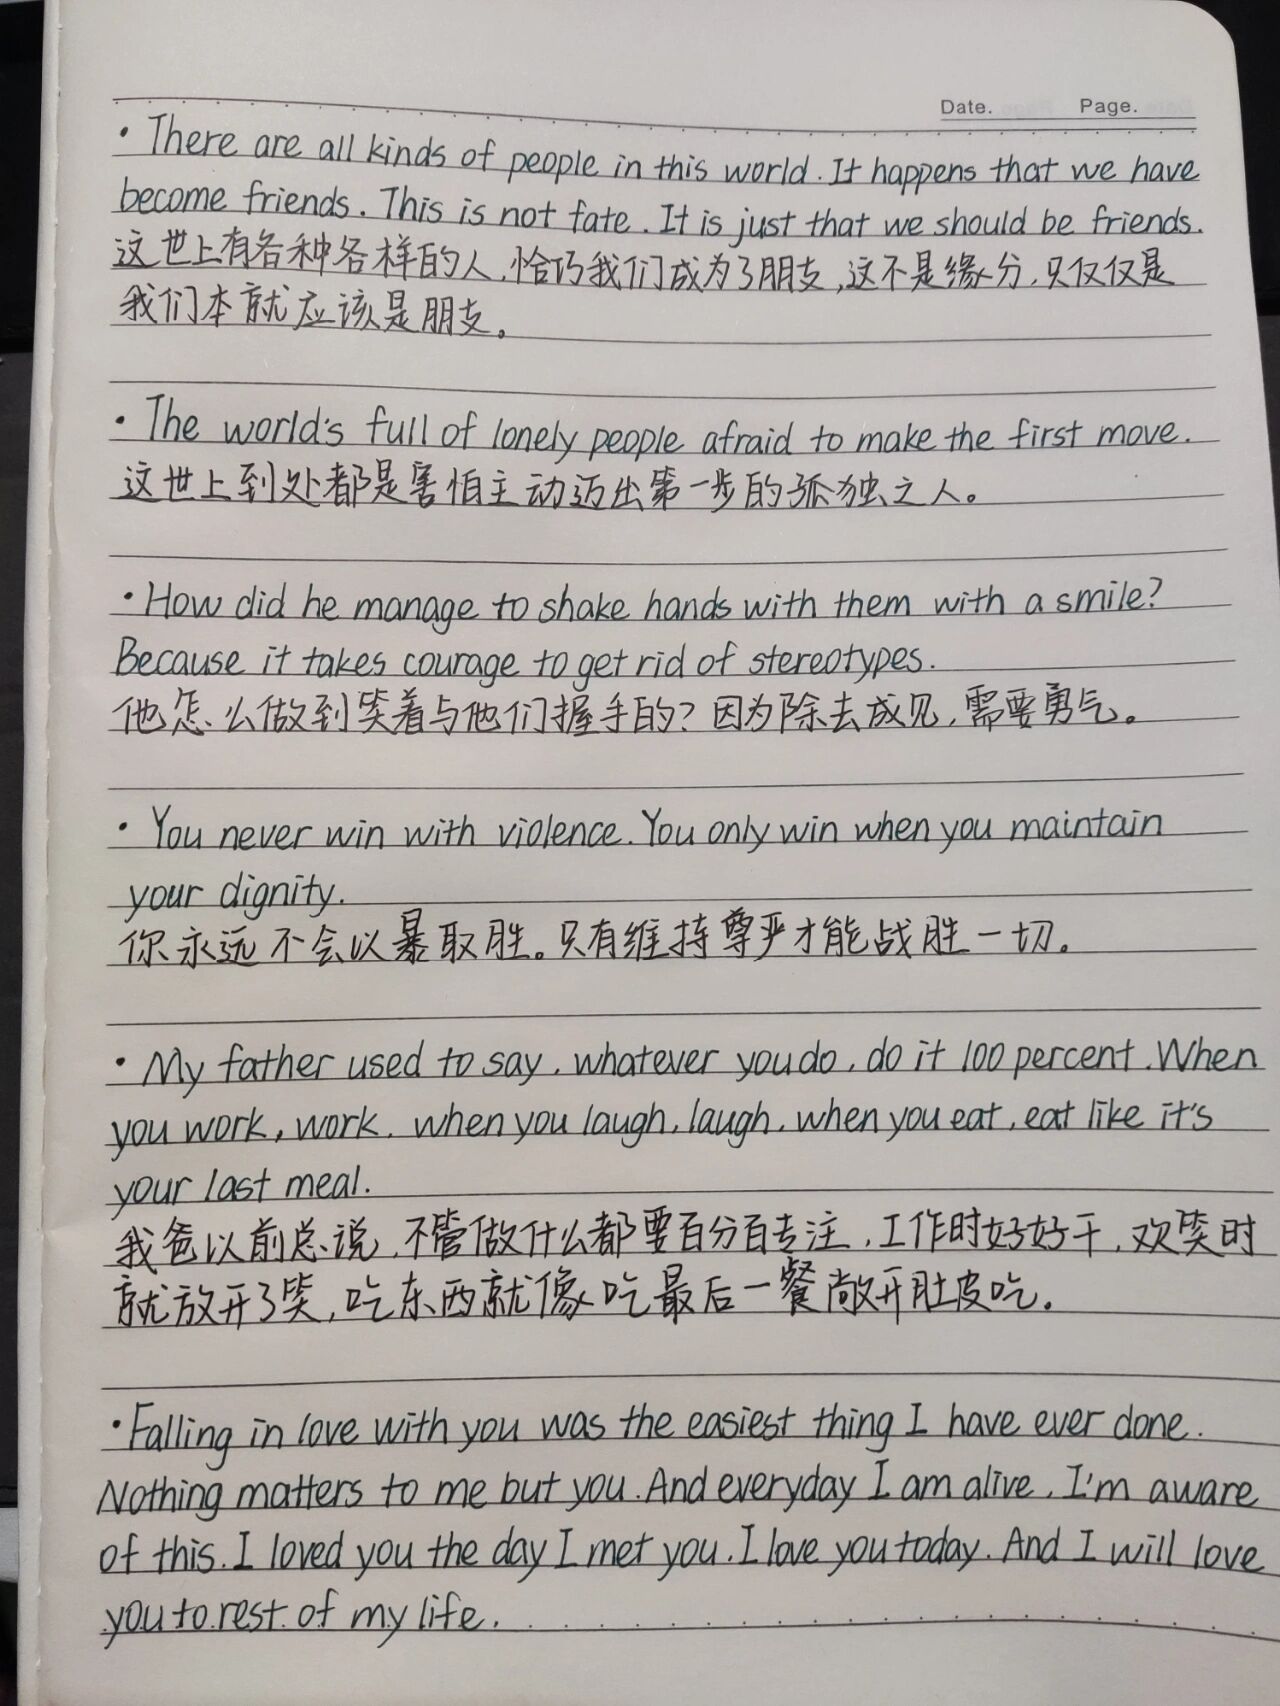 Date. Page.
· There are all kinds of people in this world. It happens that we have
become friends. This is not fate. It is just that we should be friends.
这世上有各种各样的人,恰巧我们成为了朋友,这不是缘分,只仅仅是
我们本就应该是朋友。
· The world's full of lonely people afraid to make the first move.
这世上到处都是害怕主动迈出第一步的孤独之人。
· How did he manage to shake hands with them with a smile?
Because it takes courage to get rid of stereotypes.
他怎么做到笑着与他们握手的?因为除去成见,需要勇气。
· You never win with violence. You only win when you maintain
your dignity.
你永远不会以暴取胜。只有维持尊严才能战胜一切。
· My father used to say, whatever you do, do it 100 percent. When
you work, work, when you laugh, laugh, when you eat, eat like it's
your last meal.
我爸以前总说,不管做什么都要百分百专注,工作时好好干,欢笑时
就放开了笑,吃东西就像吃最后一餐敞开肚皮吃。
· Falling in love with you was the easiest thing I have ever done.
Nothing matters to me but you. And everyday I am alive, I'm aware
of this. I loved you the day I met you. I love you today. And I will love
you to rest of my life.